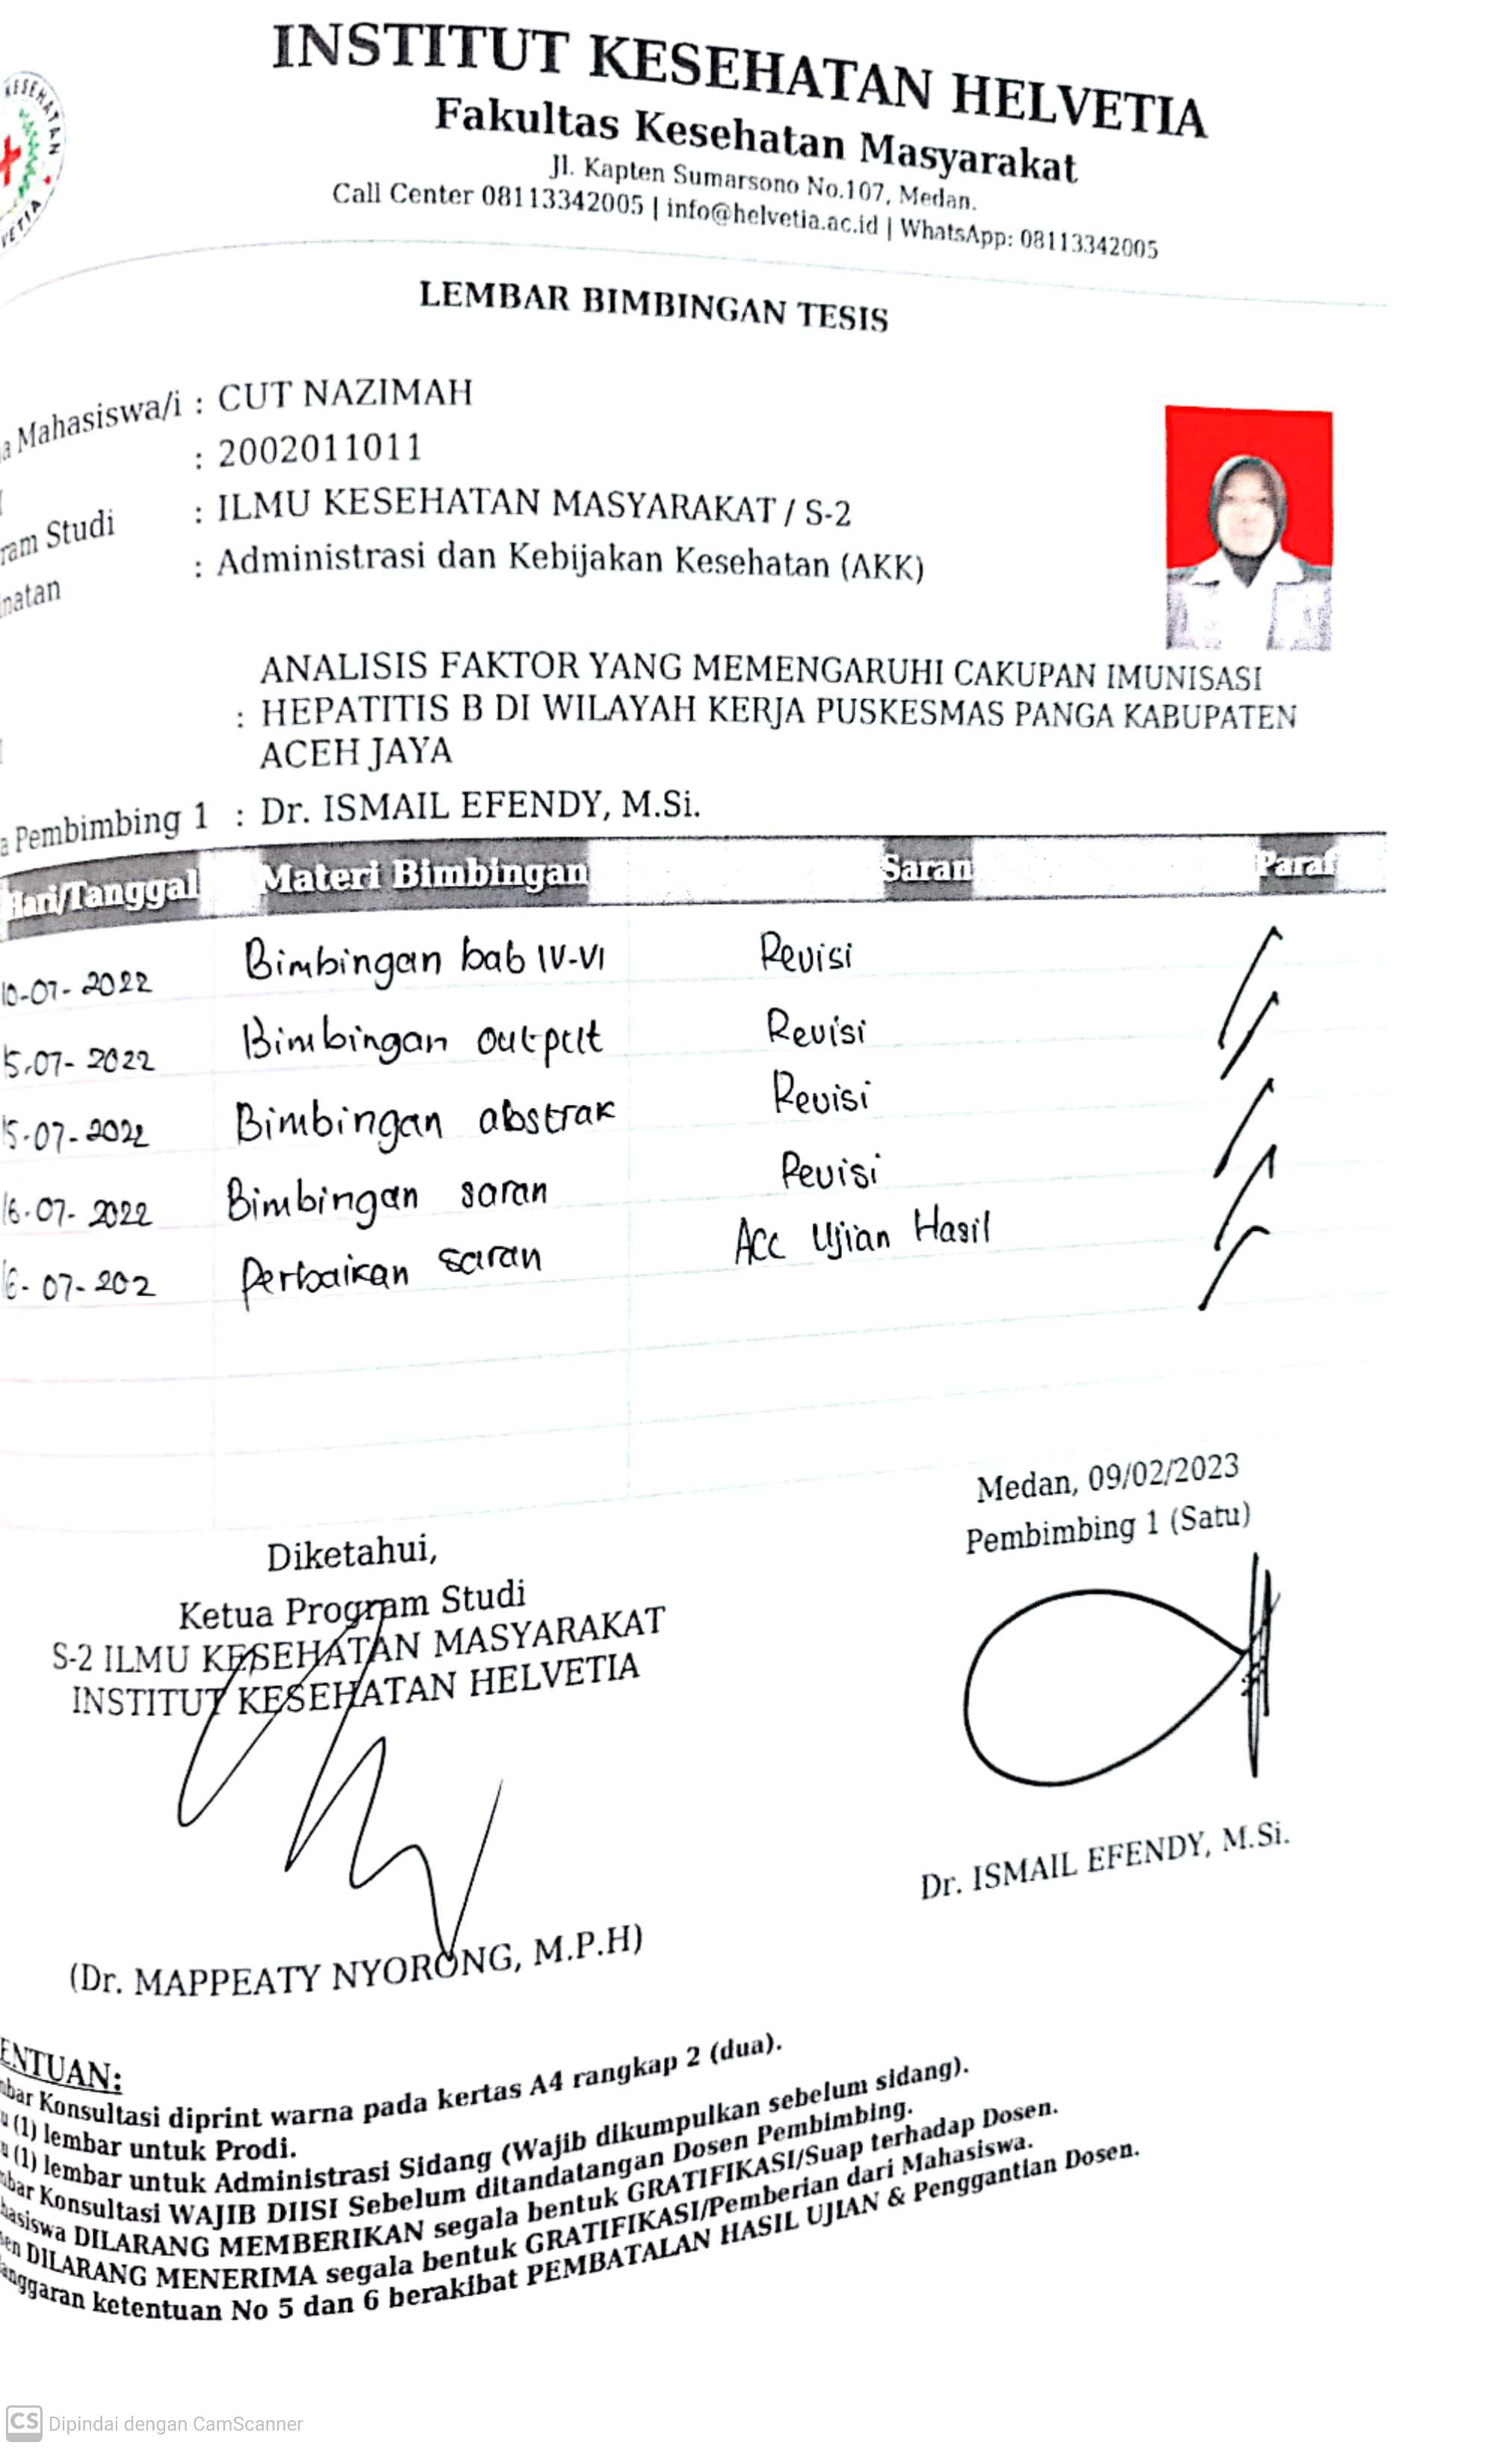 INSTITUT KESEHATAN HELVETIA
Fakultas Kesehatan Masyarakat
Jl. Kapten Sumarsono No.107, Medan.
Call Center 08113342005 | info@helvetia.ac.id | WhatsApp: 08113342005
KESEHATAN
VETIA
LEMBAR BIMBINGAN TESIS
a Mahasiswa/i : CUT NAZIMAH
: 2002011011
ram Studi : ILMU KESEHATAN MASYARAKAT / S-2
natan : Administrasi dan Kebijakan Kesehatan (AKK)
ANALISIS FAKTOR YANG MEMENGARUHI CAKUPAN IMUNISASI
: HEPATITIS B DI WILAYAH KERJA PUSKESMAS PANGA KABUPATEN
ACEH JAYA
a Pembimbing 1 : Dr. ISMAIL EFENDY, M.Si.
Hari/Tanggal Materi Bimbingan Saran Paraf
10-07-2022 Bimbingan bab IV-VI Revisi
5-07-2022 Bimbingan output Revisi
15-07-2022 Bimbingan abstrak Revisi
16-07-2022 Bimbingan saran Revisi
16-07-202 Perbaikan saran Acc Ujian Hasil
Medan, 09/02/2023
Pembimbing 1 (Satu)
Diketahui,
Ketua Program Studi
S-2 ILMU KESEHATAN MASYARAKAT
INSTITUT KESEHATAN HELVETIA
Dr. ISMAIL EFENDY, M.Si.
(Dr. MAPPEATY NYORONG, M.P.H)
ENTUAN:
bar Konsultasi diprint warna pada kertas A4 rangkap 2 (dua).
u (1) lembar untuk Prodi.
u (1) lembar untuk Administrasi Sidang (Wajib dikumpulkan sebelum sidang).
bar Konsultasi WAJIB DIISI Sebelum ditandatangan Dosen Pembimbing.
hasiswa DILARANG MEMBERIKAN segala bentuk GRATIFIKASI/Suap terhadap Dosen.
en DILARANG MENERIMA segala bentuk GRATIFIKASI/Pemberian dari Mahasiswa.
anggaran ketentuan No 5 dan 6 berakibat PEMBATALAN HASIL UJIAN & Penggantian Dosen.
CS Dipindai dengan CamScanner